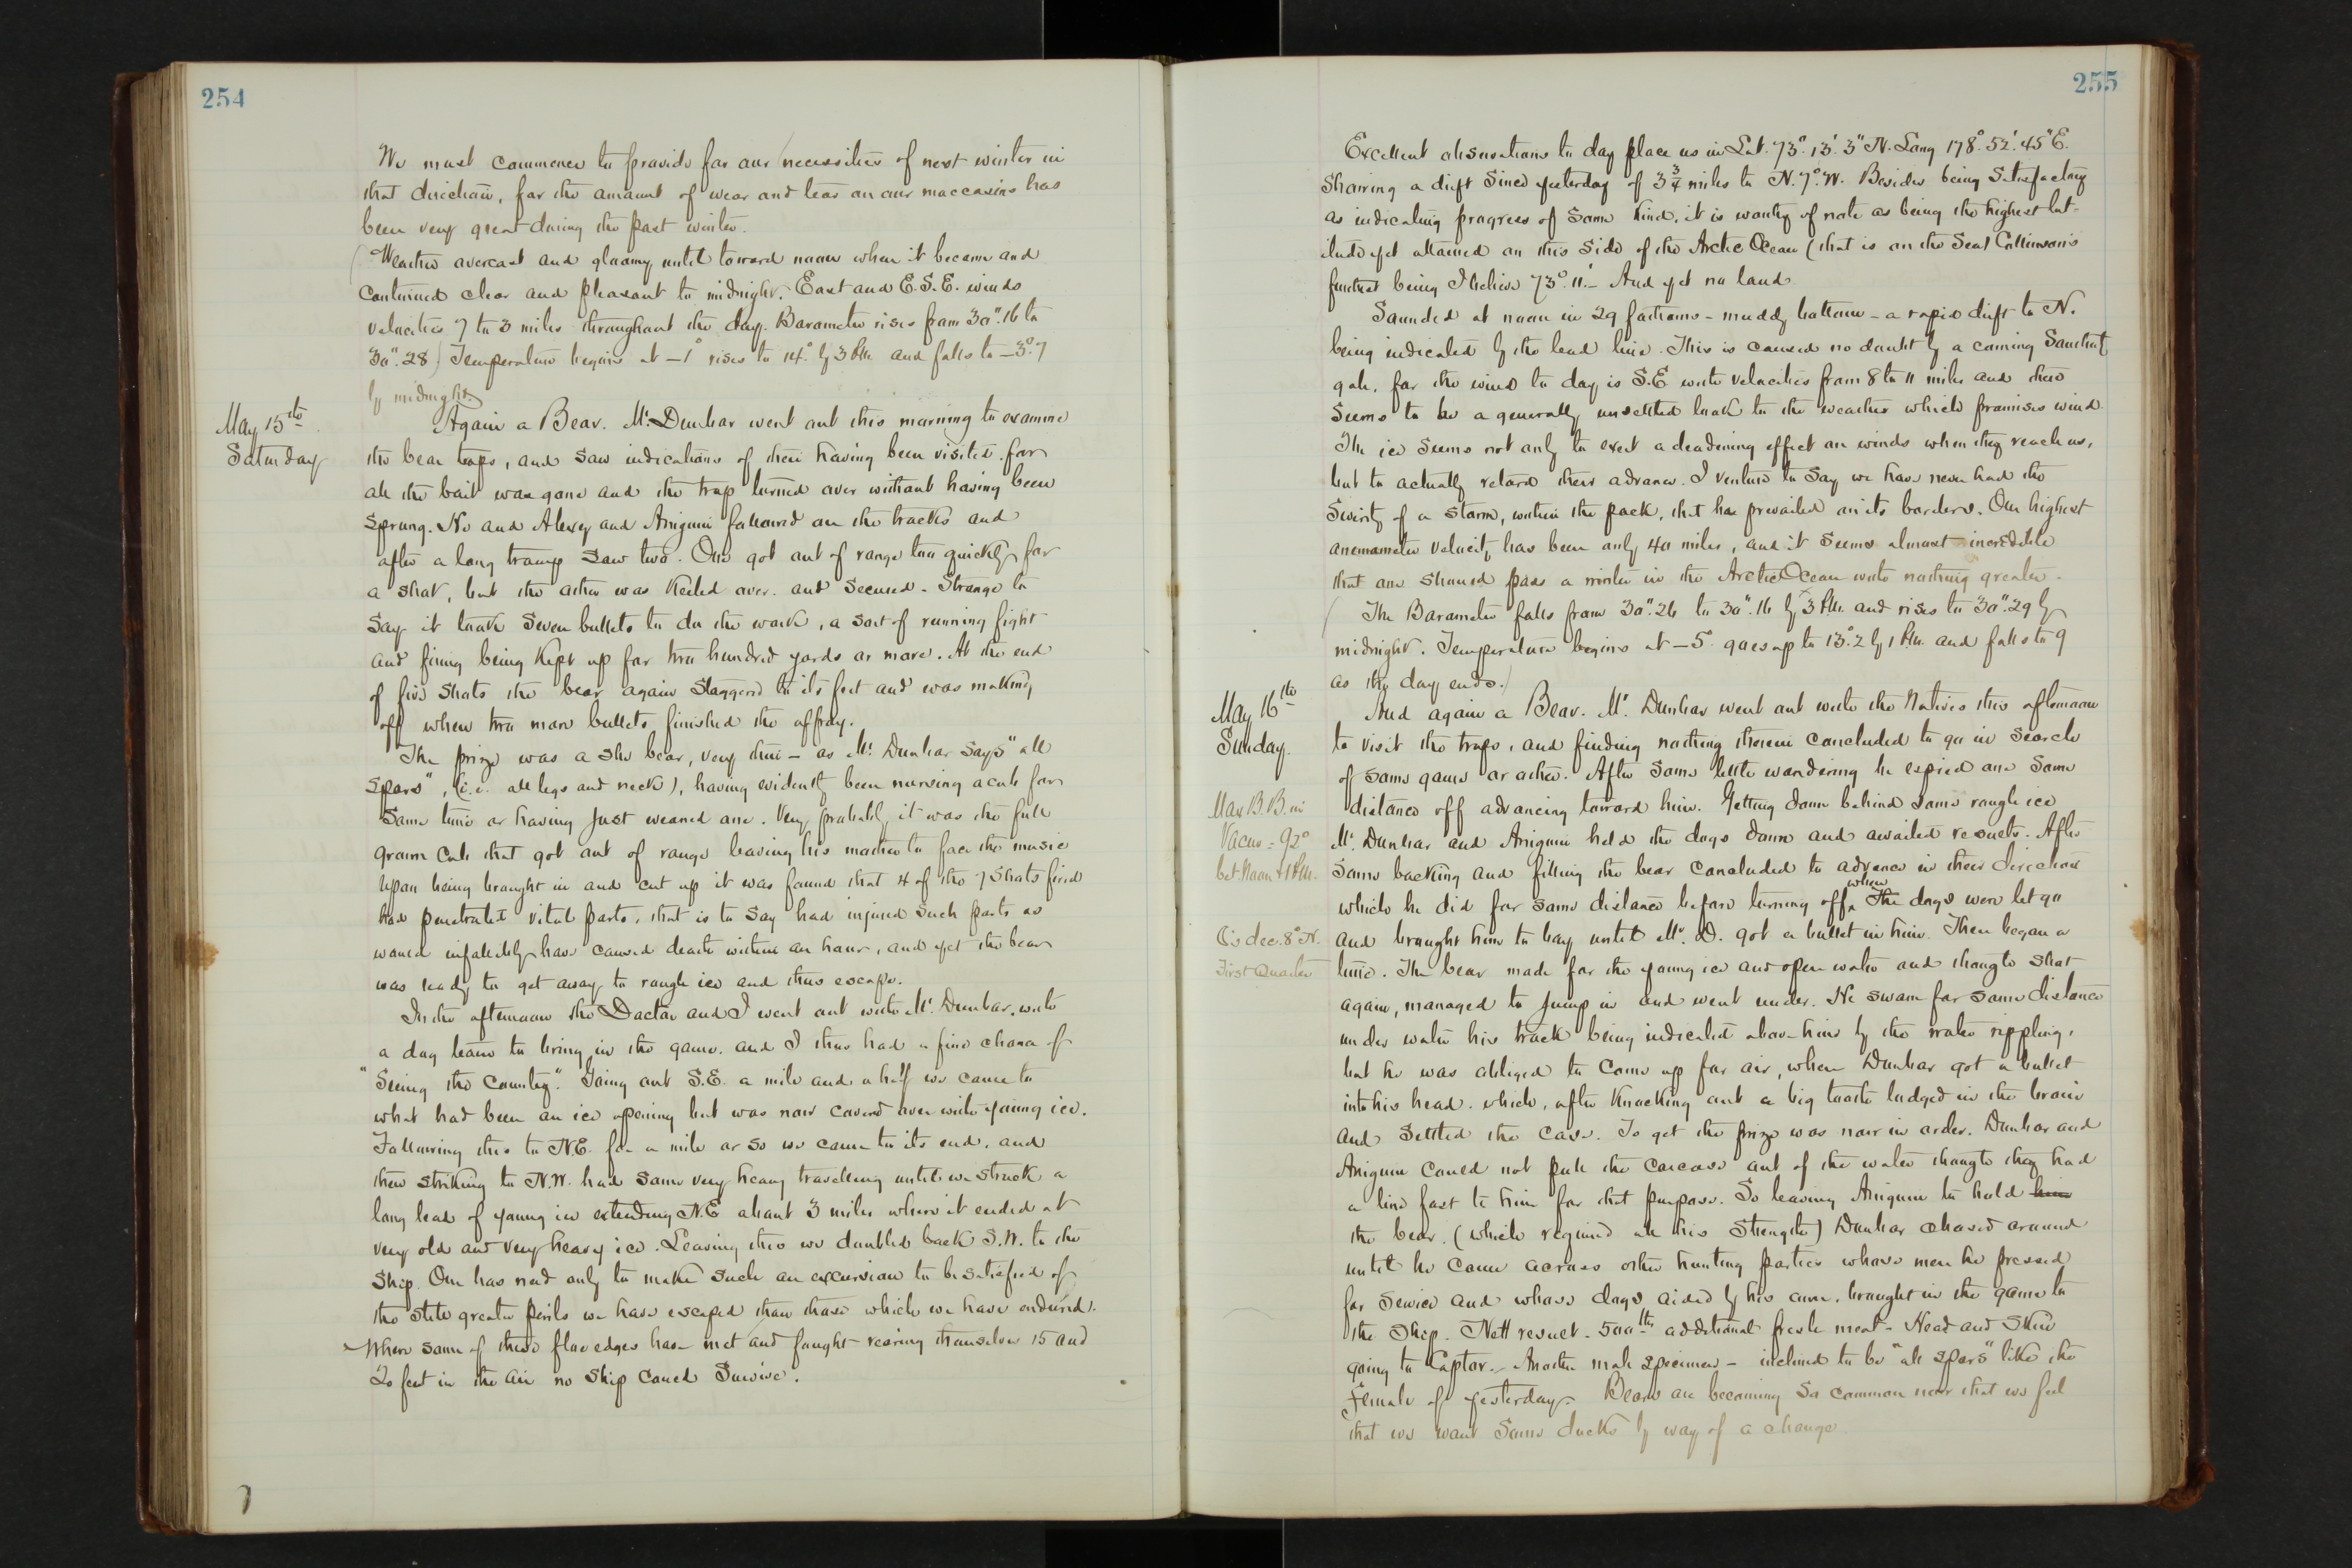 254
We must commence to provide for our necessities of next winter in
that direction, for the amount of wear and tear on our moccasins has
been very great during the past winter.
(Weather overcast and gloomy until toward noon when it became and
continued clear and pleasant to midnight. East and E.S.E. winds
velocities 7 to 3 miles throughout the day. Barometer rises from 30".16 to
30".28) Temperature begins at -1° rises to 14° by 3 P.M. and falls to -3°.7
by midnight.
May 15th
Saturday
Again a Bear. Mr. Dunbar went out this morning to examine
the bear traps, and saw indications of their having been visited for
all the bait was gone and the trap turned over without having been
sprung. He and Alexey and Aniguin followed on the tracks and
after a long tramp saw two. One got out of range too quickly for
a shot, but the other was keeled over and secured. Strange to
say it took seven bullets to do the work, a sort of running fight
and firing being kept up for two hundred yards or more. At the end
of five shots the bear again staggered to its feet and was making
off when two more bullets finished the affray.
The prize was a she bear, very thin - as Mr. Dunbar says "all
spars", (i.e. all legs and neck), having evidently been nursing a cub for
some time or having just weaned one. Very probably it was the full
grown cub that got out of range leaving his mother to face the music
Upon being brought in and cut up it was found that 4 of the 7 shots fired
had penetrated vital parts, that is to say had injured such parts as
would infallibly have caused death within an hour, and yet the bear
was ready to get away to rough ice and thus escape.
In the afternoon the Doctor and I went out with Mr. Dunbar, with
a dog team to bring in the game. and I thus had a fine chance of
"Seeing the Country". Going out S.E. a mile and a half we came to
what had been an ice opening but was now covered over with young ice.
Following this to N.E. for a mile or so we came to its end, and
then striking to N.W. had some very heavy travelling until we struck a
long lead of young ice extending N.E about 3 miles where it ended at
very old and very heavy ice. Leaving this we doubled back S.W. to the
ship. One has need only to make such an excursion to be satisfied of
the still greater perils we have escaped than those which we have endured.
Where some of these floe edges have met and fought rearing themselves 15 and
20 feet in the air no ship could survive.
255
Excellent observations to day place us in Lat. 73°.13'.3" N. Long 178°.52'.45" E.
Showing a drift since yesterday of 3¾ miles to N.7°.W. Besides being satisfactory
as indicating progress of some kind, it is worthy of note as being the highest lat-
itude yet attained on this side of the Arctic Ocean (that is on the Sea) Collinson's
furthest being I believe 73°.11'. - And yet no land.
Sounded at noon in 29 fathoms - muddy bottom - a rapid drift to N.
being indicated by the lead line. This is caused no doubt by a coming Southerly
gale, for the wind to day is S.E. with velocities from 8 to 11 miles and there
seems to be a generally unsettled look to the weather which promises wind.
The ice seems not only to exert a deadening effect on winds when they reach us,
but to actually retard their advance. I venture to say we have never had the
severity of a storm, within the pack, that has prevailed on its borders. Our highest
anemometer velocity has been only 40 miles, and it seems almost incredible
that one should pass a winter in the Arctic Ocean with nothing greater.
(The Barometer falls from 30".26 to 30".16 by 3 P.M. and rises to 30".29 by
midnight. Temperature begins at -5° goes up to 13°.2 by 1 P.M. and falls to 9
as the day ends.)
May 16th
Sunday.
And again a Bear. Mr. Dunbar went out with the Natives this afternoon
to visit the traps, and finding nothing therein concluded to go in search
of some game or other. After some little wandering he espied one some
Max B. B. in
Vacuo = 92°
bet Noon & 1 P.M.
distance off advancing toward him. Getting down behind some rough ice
Mr. Dunbar and Aniguin held the dogs down and awaited results. After
some backing and filling the bear concluded to advance in their direction
which he did for some distance before turning off, when The dogs were let go
☾'s dec. 8° N.
First Quarter
and brought him to bay until Mr. D. got a bullet in him. Then began a
time. The bear made for the young ice and open water and though shot
again, managed to jump in and went under. He swam for some distance
under water his track being indicated above him by the water rippling,
but he was obliged to come up for air, when Dunbar got a bullet
into his head. which, after knocking out a big tooth lodged in the brain
and settled the case. To get the prize was now in order. Dunbar and
Aniguin could not pull the carcass out of the water though they had
a line fast to him for that purpose. So leaving Aniguin to hold him
the bear. (which required all his strength) Dunbar chased around
until he came across other hunting parties whose men he pressed
for service and whose dogs aided by his own, brought in the game to
the Ship. Nett result - 500 lbs additional fresh meat - Head and Skin
going to Captor. - Another male specimen - inclined to be "all spars" like the
female of yesterday. Bears are becoming so common now that we feel
that we want some ducks by way of a change